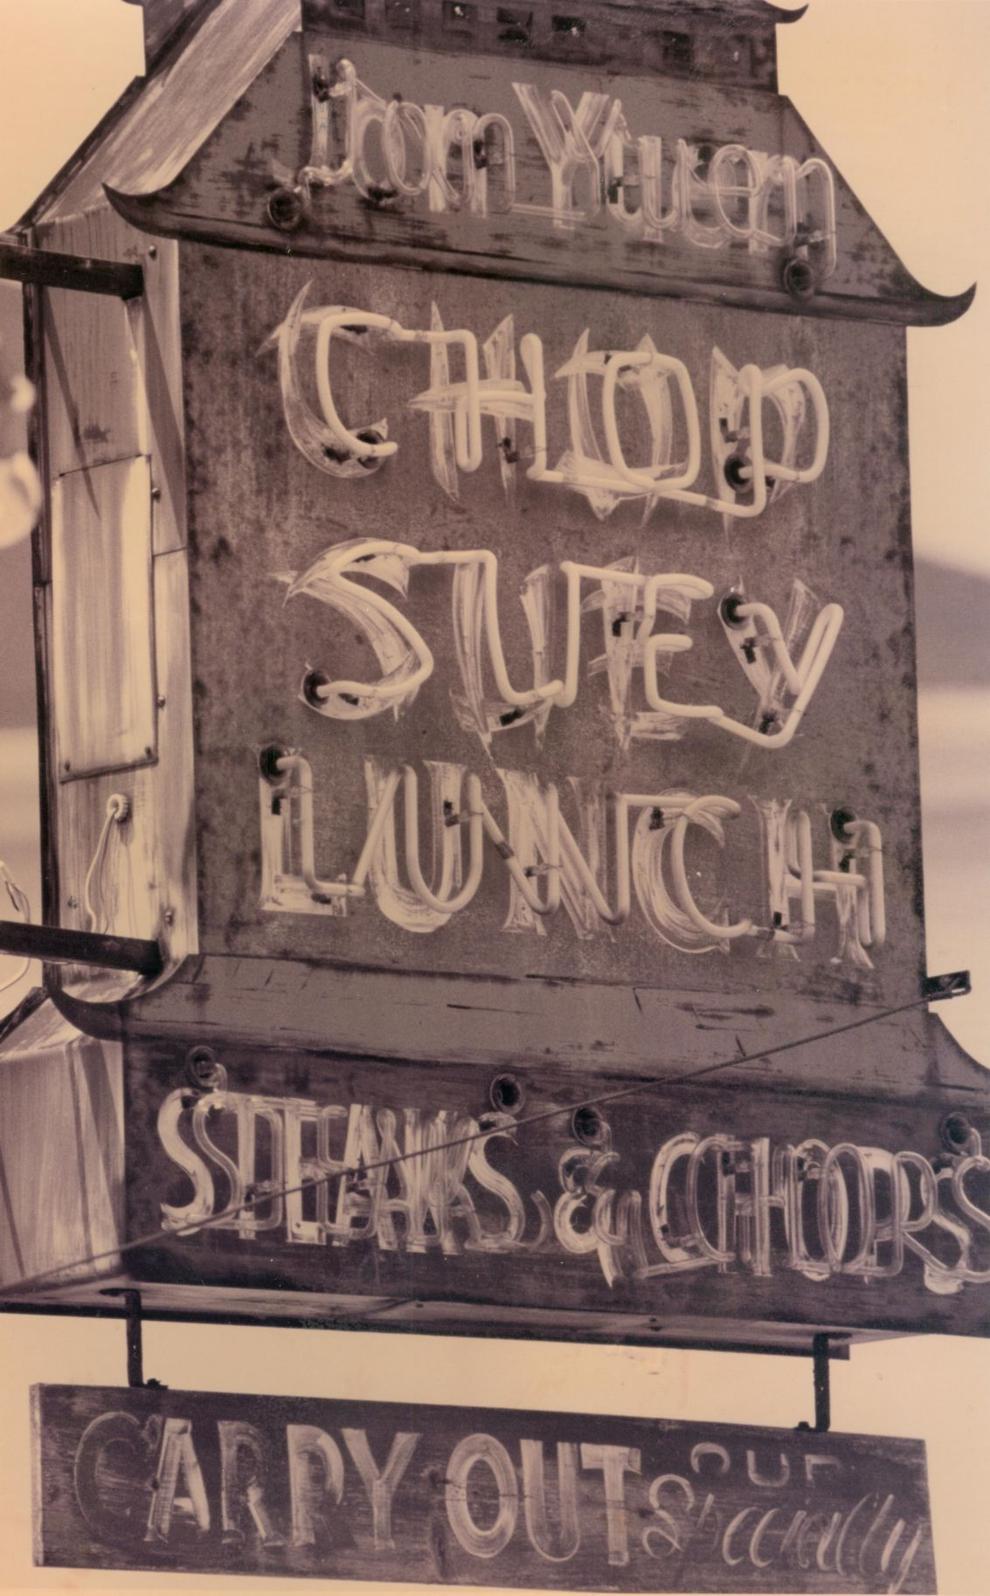 Yuen
CHOP
SUEY
LUNCH
STEAKS & CHOPS
CARRY OUT OUR
Specialty